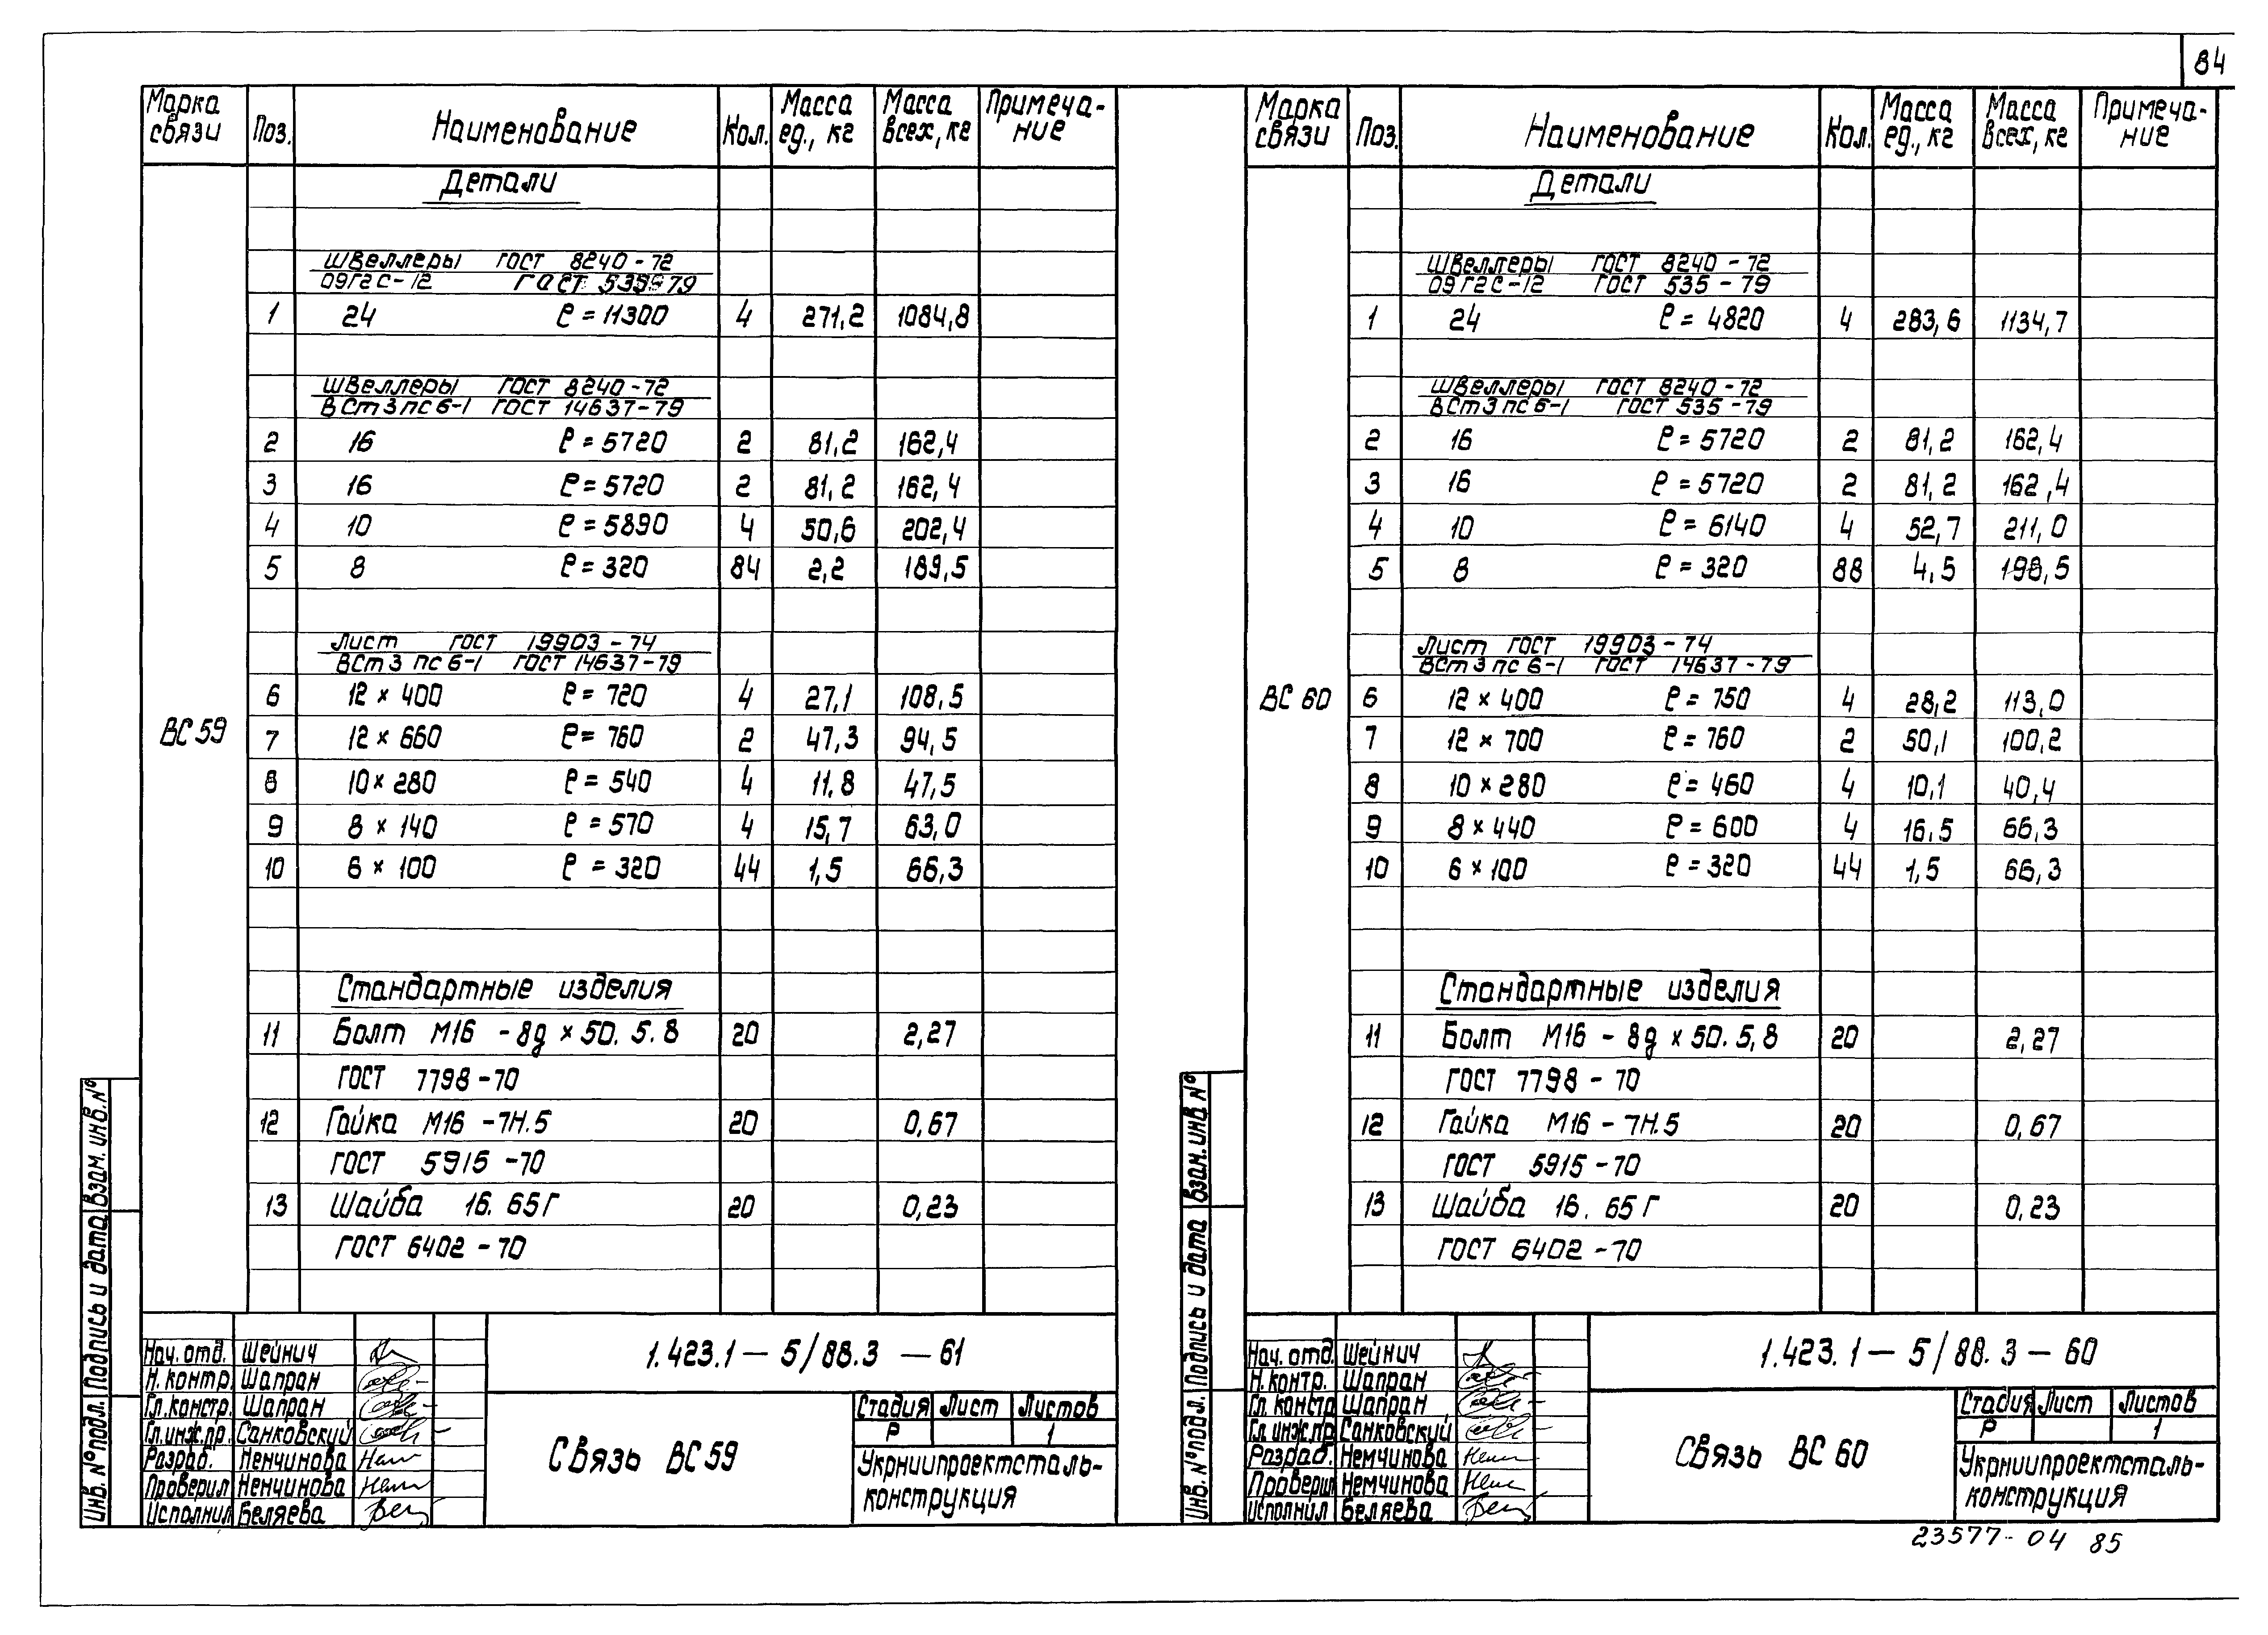 84
Марка связи Поз. Наименование Кол. Масса ед., кг Масса всех, кг Примеча-ние
Детали
Швеллеры ГОСТ 8240-72
09Г2С-12 ГОСТ 535-79
1 24 ℓ=11300 4 271,2 1084,8
Швеллеры ГОСТ 8240-72
ВСт3пс6-1 ГОСТ 14637-79
2 16 ℓ=5720 2 81,2 162,4
3 16 ℓ=5720 2 81,2 162,4
4 10 ℓ=5890 4 50,6 202,4
5 8 ℓ=320 84 2,2 189,5
Лист ГОСТ 19903-74
ВСт3пс6-1 ГОСТ 14637-79
6 12×400 ℓ=720 4 27,1 108,5
ВС59
7 12×660 ℓ=760 2 47,3 94,5
8 10×280 ℓ=540 4 11,8 47,5
9 8×140 ℓ=570 4 15,7 63,0
10 6×100 ℓ=320 44 1,5 66,3
Стандартные изделия
11 Болт М16-8g×50.5.8 20 2,27
ГОСТ 7798-70
12 Гайка М16-7Н.5 20 0,67
ГОСТ 5915-70
13 Шайба 16.65Г 20 0,23
ГОСТ 6402-70
Инв. № подл. Подпись и дата Взам. инв. №
Нач. отд. Шейнич
Н. контр. Шапран
Гл. констр. Шапран
Гл. инж. пр. Санковский
Разраб. Немчинова
Проверил Немчинова
Исполнил Беляева
1.423.1-5/88.3-61
Связь ВС59
Стадия Лист Листов
Р 1
Укрниипроектсталь-
конструкция
Марка связи Поз. Наименование Кол. Масса ед., кг Масса всех, кг Примеча-ние
Детали
Швеллеры ГОСТ 8240-72
09Г2С-12 ГОСТ 535-79
1 24 ℓ=4820 4 283,6 1134,7
Швеллеры ГОСТ 8240-72
ВСт3пс6-1 ГОСТ 535-79
2 16 ℓ=5720 2 81,2 162,4
3 16 ℓ=5720 2 81,2 162,4
4 10 ℓ=6140 4 52,7 211,0
5 8 ℓ=320 88 4,5 198,5
Лист ГОСТ 19903-74
ВСт3пс6-1 ГОСТ 14637-79
ВС60
6 12×400 ℓ=750 4 28,2 113,0
7 12×700 ℓ=760 2 50,1 100,2
8 10×280 ℓ=460 4 10,1 40,4
9 8×440 ℓ=600 4 16,5 66,3
10 6×100 ℓ=320 44 1,5 66,3
Стандартные изделия
11 Болт М16-8g×50.5,8 20 2,27
ГОСТ 7798-70
12 Гайка М16-7Н.5 20 0,67
ГОСТ 5915-70
13 Шайба 16.65Г 20 0,23
ГОСТ 6402-70
Инв. № подл. Подпись и дата Взам. инв №
Нач. отд. Шейнич
Н. контр. Шапран
Гл. констр Шапран
Гл. инж. пр. Санковский
Разраб. Немчинова
Проверил Немчинова
Исполнил Беляева
1.423.1-5/88.3-60
Связь ВС60
Стадия Лист Листов
Р 1
Укрниипроектсталь-
конструкция
23577-04 85